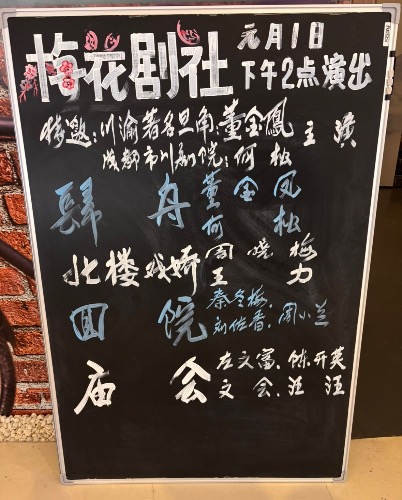 梅花剧社
元月1日
下午2点演出
特邀:川渝著名旦角:董金鳳 主演
成都市川剧院:何松
歸舟 董金凤
何松
北楼戏娇 周晓梅
王力
回院 秦冬梅、
刘佐香、周小兰
庙会 左文富、陈开英
文会、汪